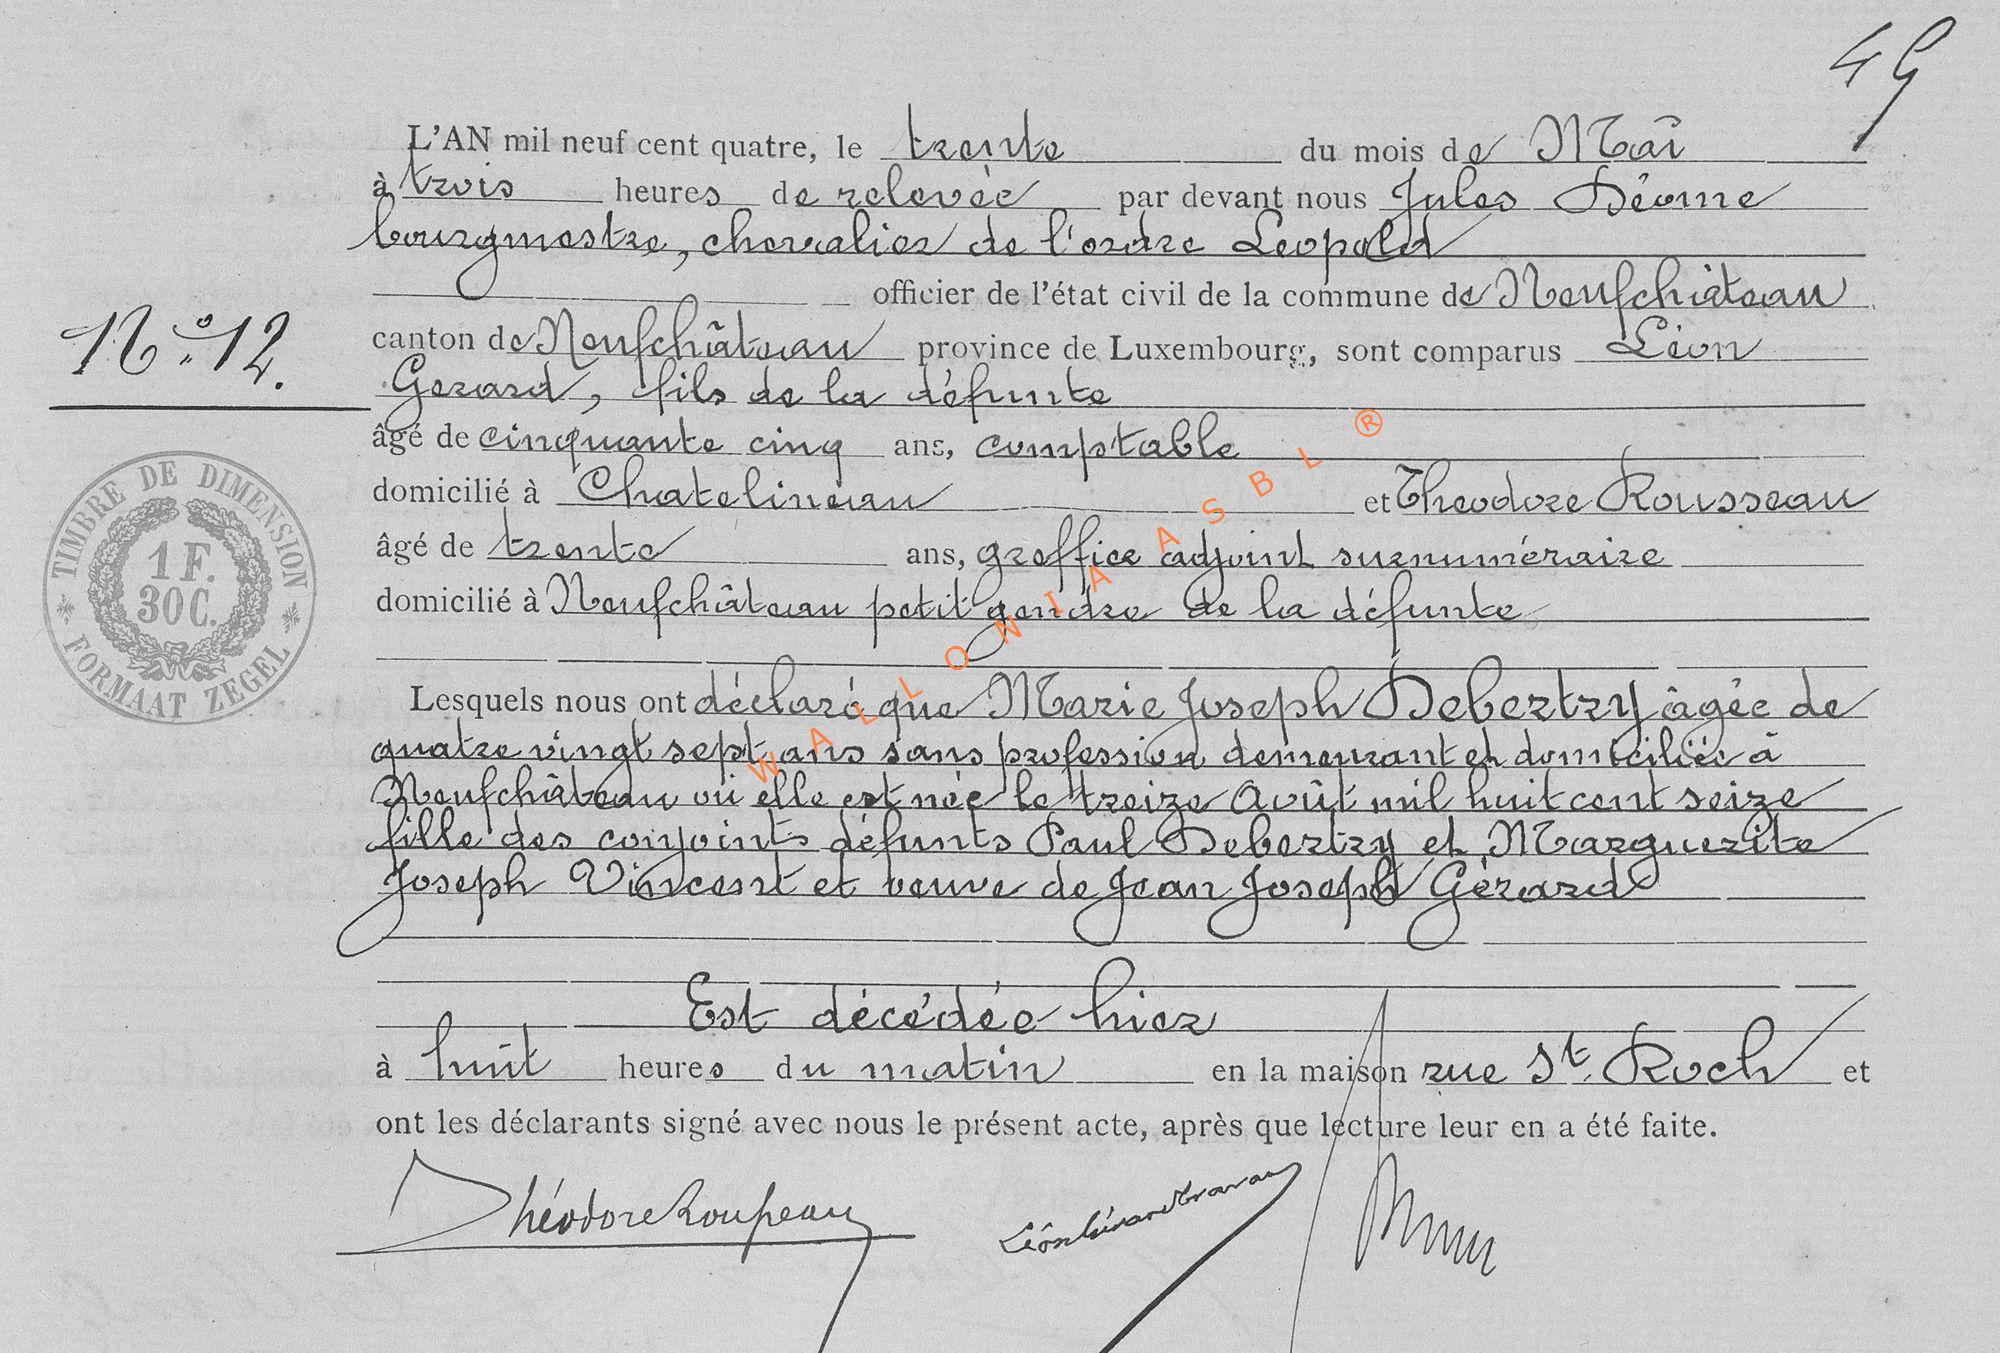 49
L'AN mil neuf cent quatre, le trente du mois de Mai
à trois heures de relevée par devant nous Jules
bourgmestre, chevalier de l'ordre Leopold
officier de l'état civil de la commune de Neufchâteau
N.º 12.
canton de Neufchâteau province de Luxembourg, sont comparus Léon
Gerard, fils de la défunte
âgé de cinquante cinq ans, comptable
domicilié à Chatelineau et Theodore Rousseau
âgé de trente ans, greffier adjoint surnuméraire
domicilié à Neufchâteau petit gendre de la défunte
TIMBRE DE DIMENSION
1 F.
30 C.
FORMAAT ZEGEL
Lesquels nous ont déclaré que Marie Joseph Debertry âgée de
quatre vingt sept ans sans profession demeurant et domiciliée à
Neufchâteau où elle est née le treize Août mil huit cent seize
fille des conjoints défunts Paul Debertry et Marguerite
Joseph Vincent et veuve de Jean Joseph Gérard
Est décédée hier
à huit heures du matin en la maison rue St. Roch et
ont les déclarants signé avec nous le présent acte, après que lecture leur en a été faite.
Théodore Rousseau Léon Gérard
WALLONIA ASBL ®